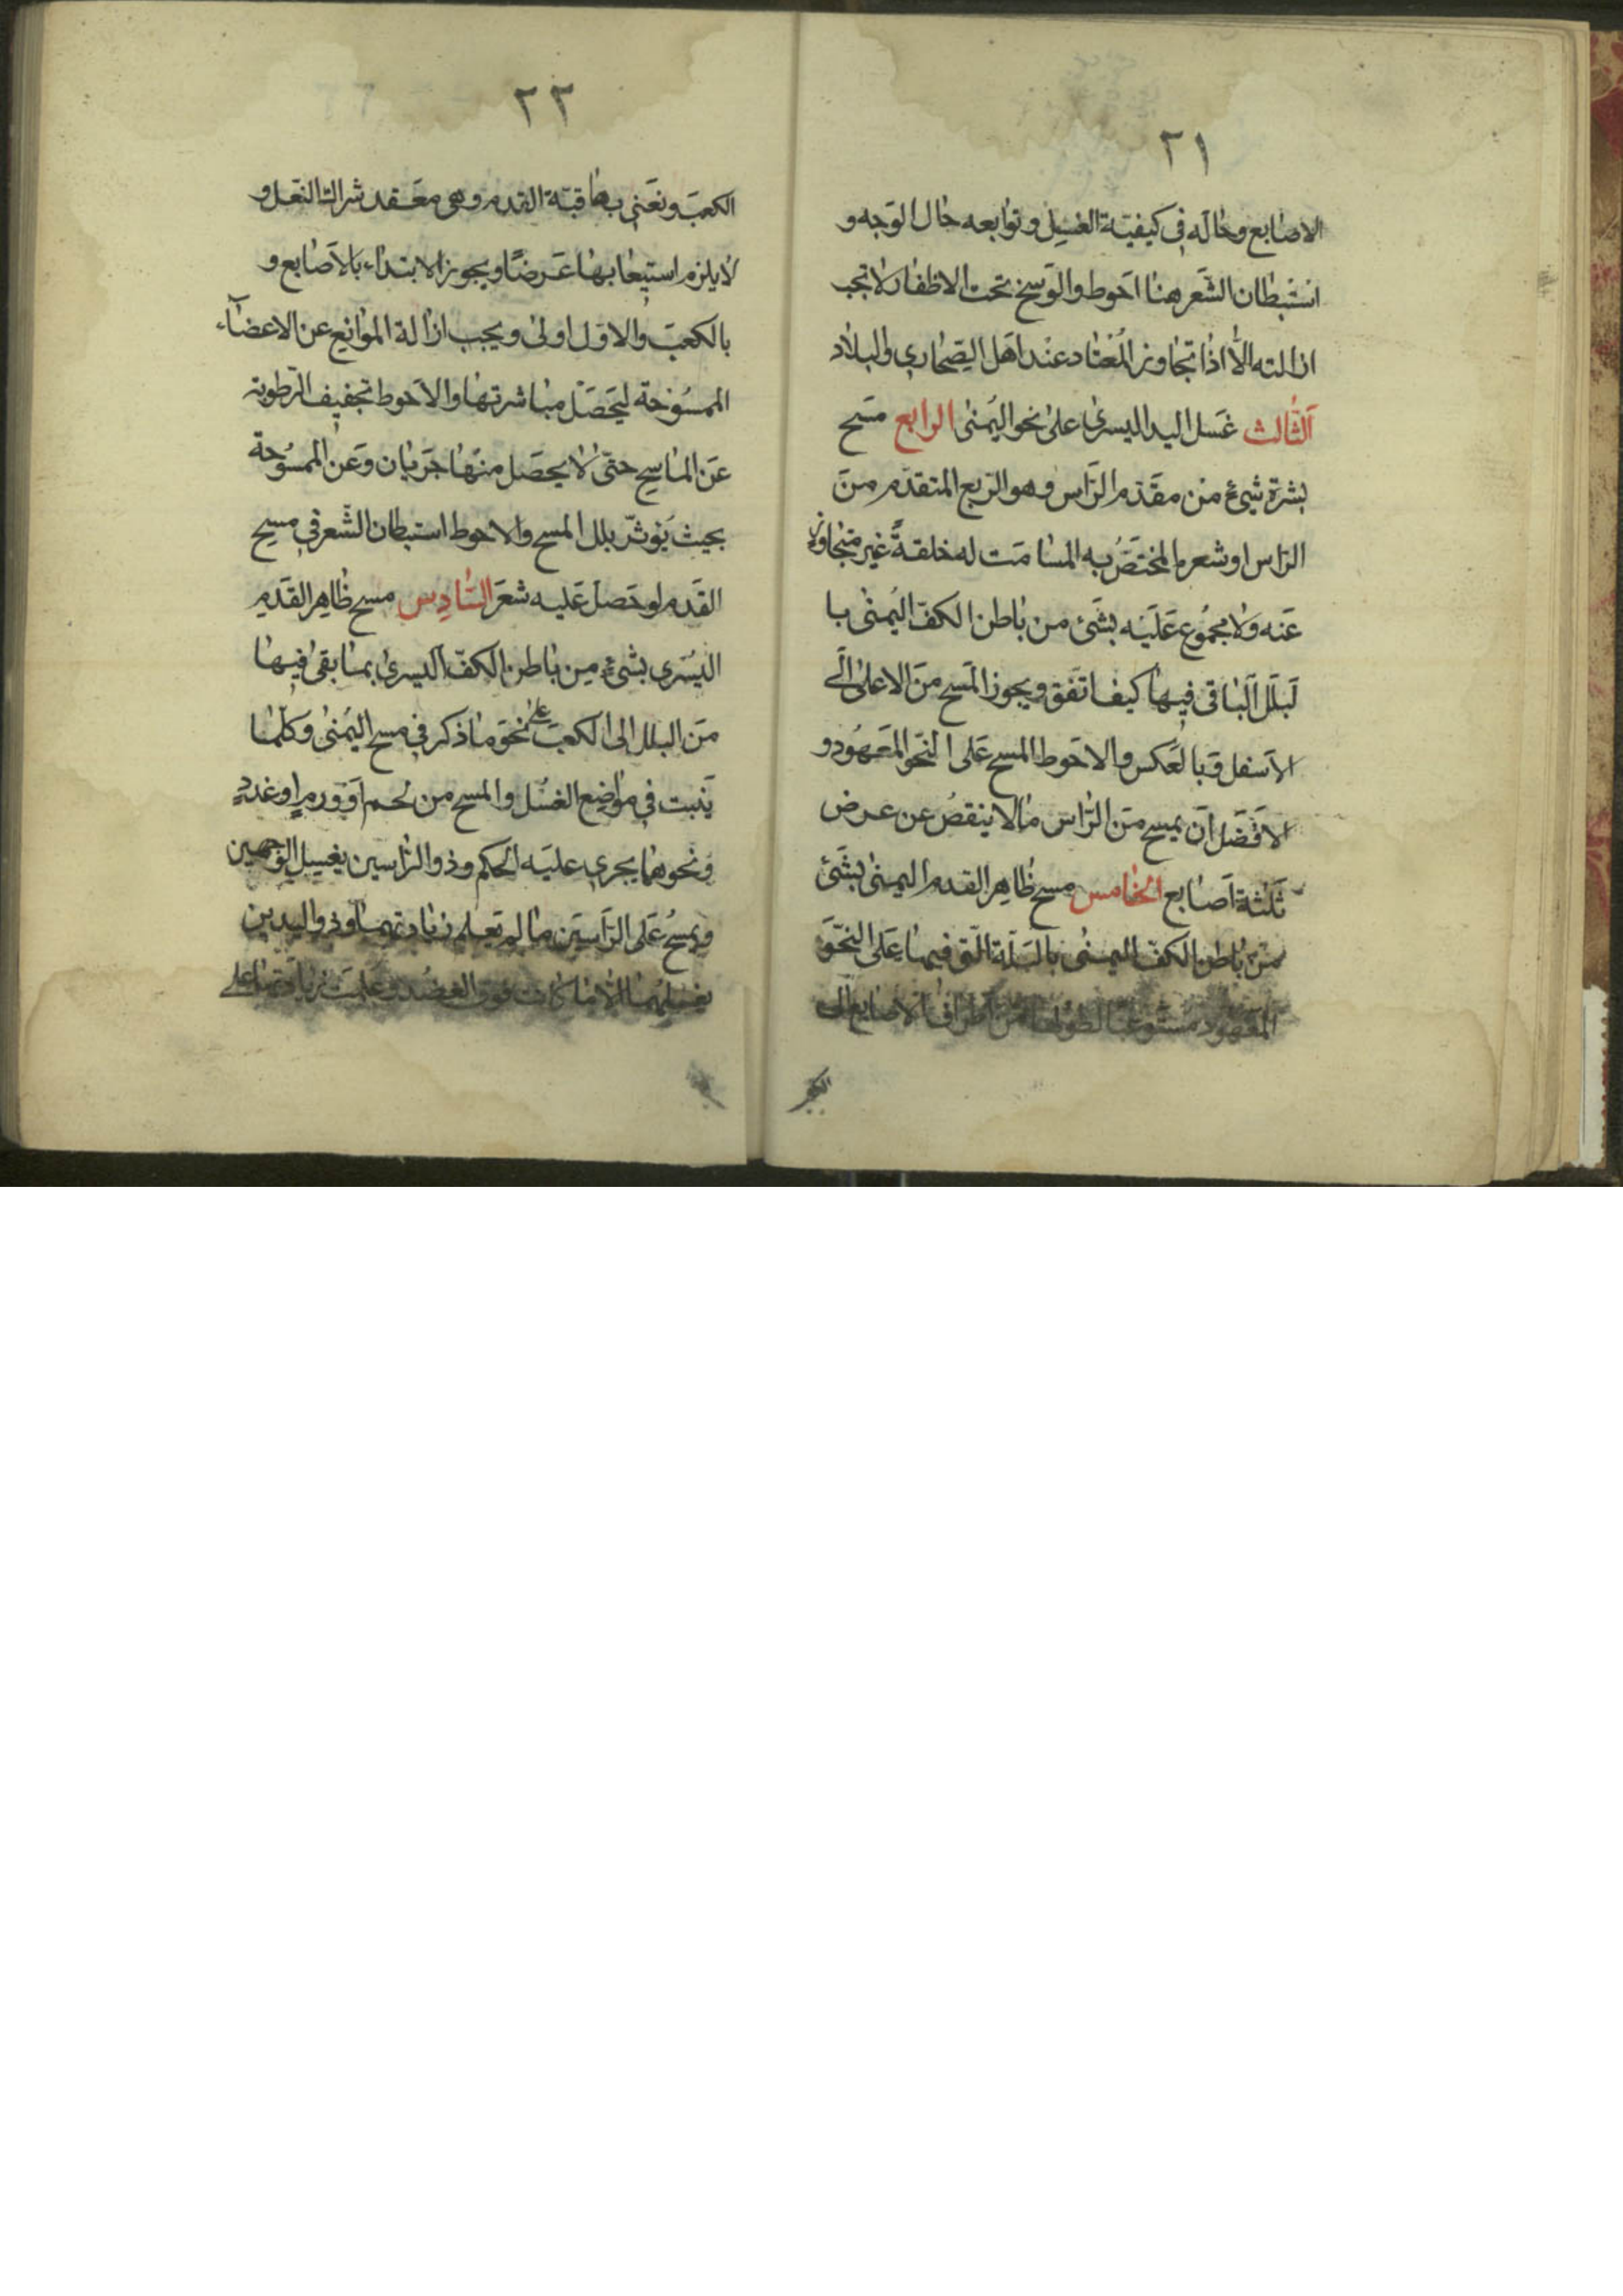 ٢١
الاصابع وحاله في كيفيّة الغسل وتوابعه حال الوَجه و
استبطان الشَّعر هنا احَوط والوَسخ تحت الاظفار لا تجب
ازالته الّا اذا تجاوز المُعتاد عند اَهل الصّحاري والبلاد
الثّالث غَسل اليد اليسرىٰ على نحو اليُمنىٰ الرابع مسَح
بشرة شيءٍ من مقدّم الرّاس وهو الرّبع المتقدّم منَ
الرّاس او شعره المختَصّ به المسامَت له خلقةً غير متجاوز
عَنه ولا مجمُوع عَلَيه بشَئ من باطن الكفّ اليُمنىٰ با
لبَلَل الباقى فيها كيف اتفَق ويجوز المَسح منَ الاعلىٰ الَى
الاَسفل وَبالعَكس والاحَوط المسح عَلى النّحو المَعَهُود و
الاَفضَل اَن يمسح منَ الرّاس مالا ينقصُ عن عرض
ثلثة اَصابع الخامس مسح ظاهِر القدم اليمنىٰ بشَئ
من باطن الكفّ اليمنىٰ بالبَلّة الّتى فيها عَلى النّحَو
المعَهود مستوعبا لطولها من اطراف الاصابع الى
الكعب
٢٢
الكعبَ ونعَنى بها قبّة القدم وهى معَقد شراك النعَل و
لا يلزم استيعابها عَرضًا ويجوز الابتداء بالاَصابع و
بالكعبَ والاوّل اولىٰ ويجب ازالة الموانِع عن الاعضآء
الممسُوحة ليَحَصَل مباشرتها والاَحوط تجفيف الرّطوبة
عَن الماسِح حتىٰ لا يحصَل منَها جَريان وَعَن الممسُوحة
بحيث يَؤثّر بلل المسح والاحوط استبطان الشّعر في مسح
القَدم لو حَصَل عَليه شعَر السّادِس مسح ظاهِر القَدم
اليُسَرى بشئٍ مِن باطن الكفّ اليسرىٰ بما بقى فيها
منَ البلل الى الكعبَ علىٰ نحَو ما ذكر في مسح اليُمنىٰ وكلّما
يَنبت في مواضِع الغسُل والمسح من لحم اَو ورم او غددٍ
وَنحوهما يجري عليَه الحكم وذو الرّأسين يغسِل الوَجهين
ويمسحُ عَلى الرّاسَين ما لم تعلم زيادتهما وذو اليدين
يغسلهما الّا ما كانت فوق العضُد وعَلمتَ زيادَتها على